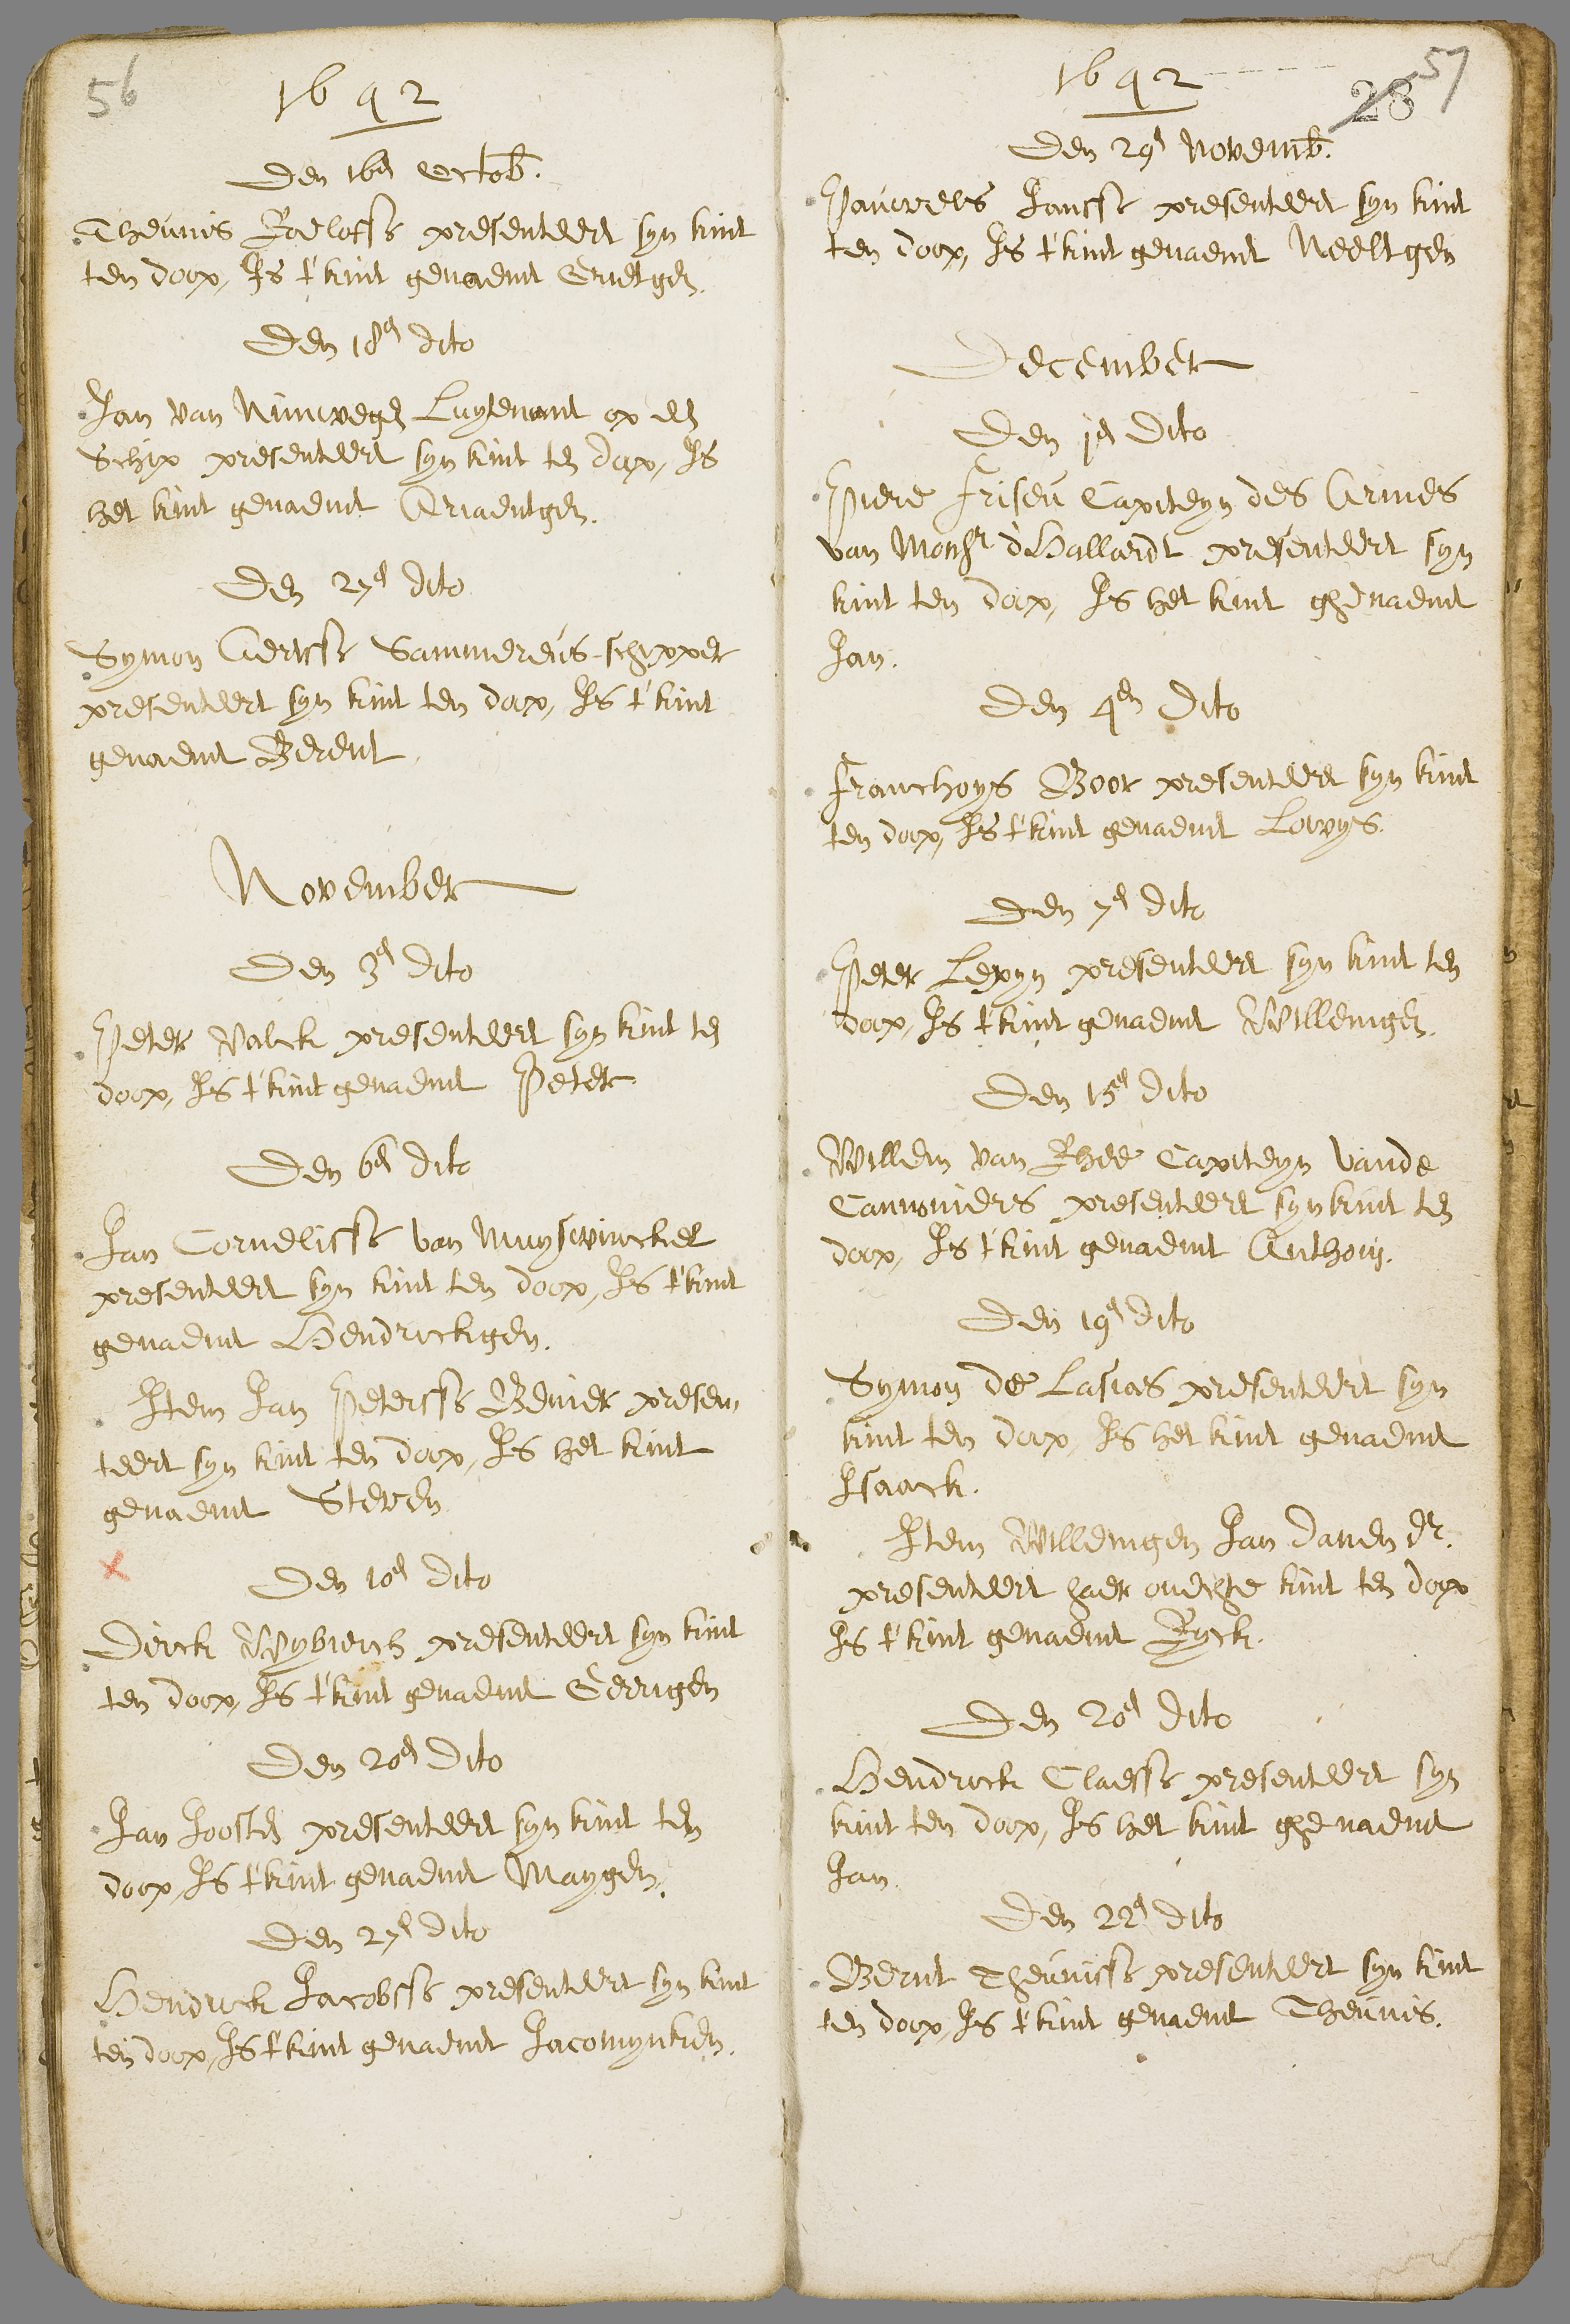 56
1642
Den 16en Octob.
Theunis Roeloffs presenteert syn kint
ten doop, Is t'kint genaemt Grietgen
Den 18en dito
Jan van Nimwegen Luytenant op een
Schip presenteert syn kint ten doop, Is
het kint genaemt Ariaentgen.
Den 27en dito
Symon Aertss Sammereus-schipper
presenteert syn kint ten doop, Is t'kint
genaemt Berent
November
Den 3en dito
Peter Valck presenteert syn kint ten
doop, Is t'kint genaemt Peter
Den 6en dito
Jan Cornelisss van Muyswinckel
presenteert syn kint ten doop, Is t'kint
genaemt Hendrickgen.
Item Jan Peterss Bemer presen,
teert syn kint ten doop, Is het kint
genaemt Steven
x
Den 10en dito
Dirck Wybierch presenteert syn kint
ten doop, Is t'kint genaemt Gerrigen
Den 20en dito
Jan Joosten presenteert syn kint ten
doop, Is t'kint genaemt Maygen.
Den 27en dito
Hendrick Jacobss presenteert syn kint
ten doop, Is t'kint genaemt Jacomynken.
1642
28 57
Den 29en Novemb.
Pauwels Janss presenteert syn kint
ten doop, Is t'kint genaemt Neeltgen
December
Den 1en dito
Piere Friseu Capiteyn des Armes
van Monsr d'Hallardt presenteert syn
kint ten doop, Is het kint ghenaemt
Jan.
Den 4en dito
Franchoys Boor presenteert syn kint
ten doop, Is t'kint genaemt Lowys.
Den 7en dito
Peter Lepyn presenteert syn kint ten
doop, Is t'kint genaemt Willemgen.
Den 15en dito
Willem van Rhee Capiteyn vande
Cannoniers presenteert syn kint ten
doop, Is t'kint genaemt Anthoni.
Den 19en dito
Symon de Lasias presenteert syn
kint ten doop, Is het kint genaemt
Isaack.
Item Willemgen Jan Danen dr.
presenteert haer onechte kint ten doop
Is t'kint genaemt Ryck.
Den 20en dito
Hendrick Claess presenteert syn
kint ten doop, Is het kint ghenaemt
Jan.
Den 22en dito
Bernt Theuniss presenteert syn kint
ten doop, Is t'kint genaemt Theunis.